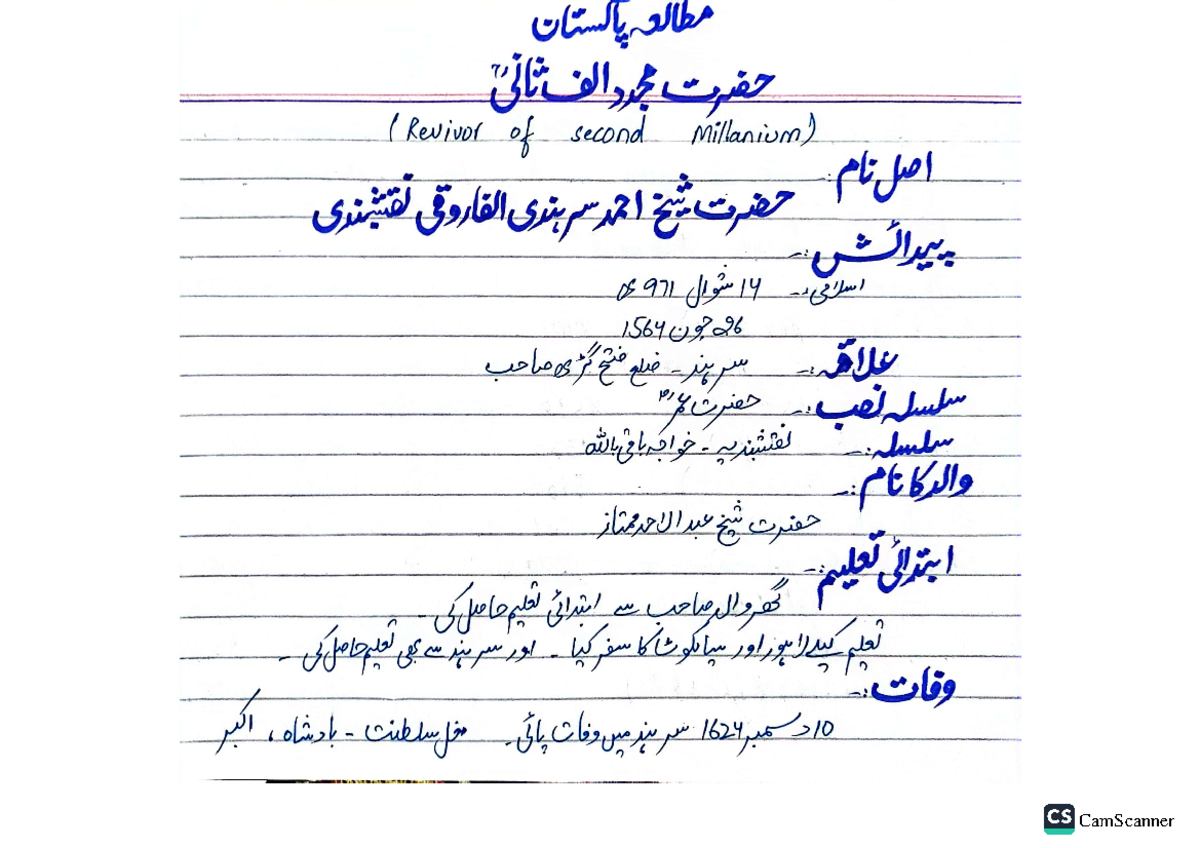 مطالعہ پاکستان
حضرت مجدد الف ثانیؒ
(Revivor of second Millanium)
اصل نام:
حضرت شیخ احمد سرہندی الفاروقی نقشبندی
پیدائش:-
اسلامی:- 14 شوال 971ھ
26 جون 1564
علاقہ:- سرہند - ضلع فتح گڑھ صاحب
سلسلہ نصب:- حضرت عمرؓ
سلسلہ:- نقشبندیہ - خواجہ باقی باللہ
والد کا نام:-
حضرت شیخ عبدالاحد ممتاز
ابتدائی تعلیم:-
گھر والد صاحب سے ابتدائی تعلیم حاصل کی -
تعلیم کیلے لاہور اور سیالکوٹ کا سفر کیا - اور سرہند سے بھی تعلیم حاصل کی -
وفات:-
10 دسمبر 1624 سرہند میں وفات پائی - مغل سلطنت - بادشاہ، اکبر
CS CamScanner